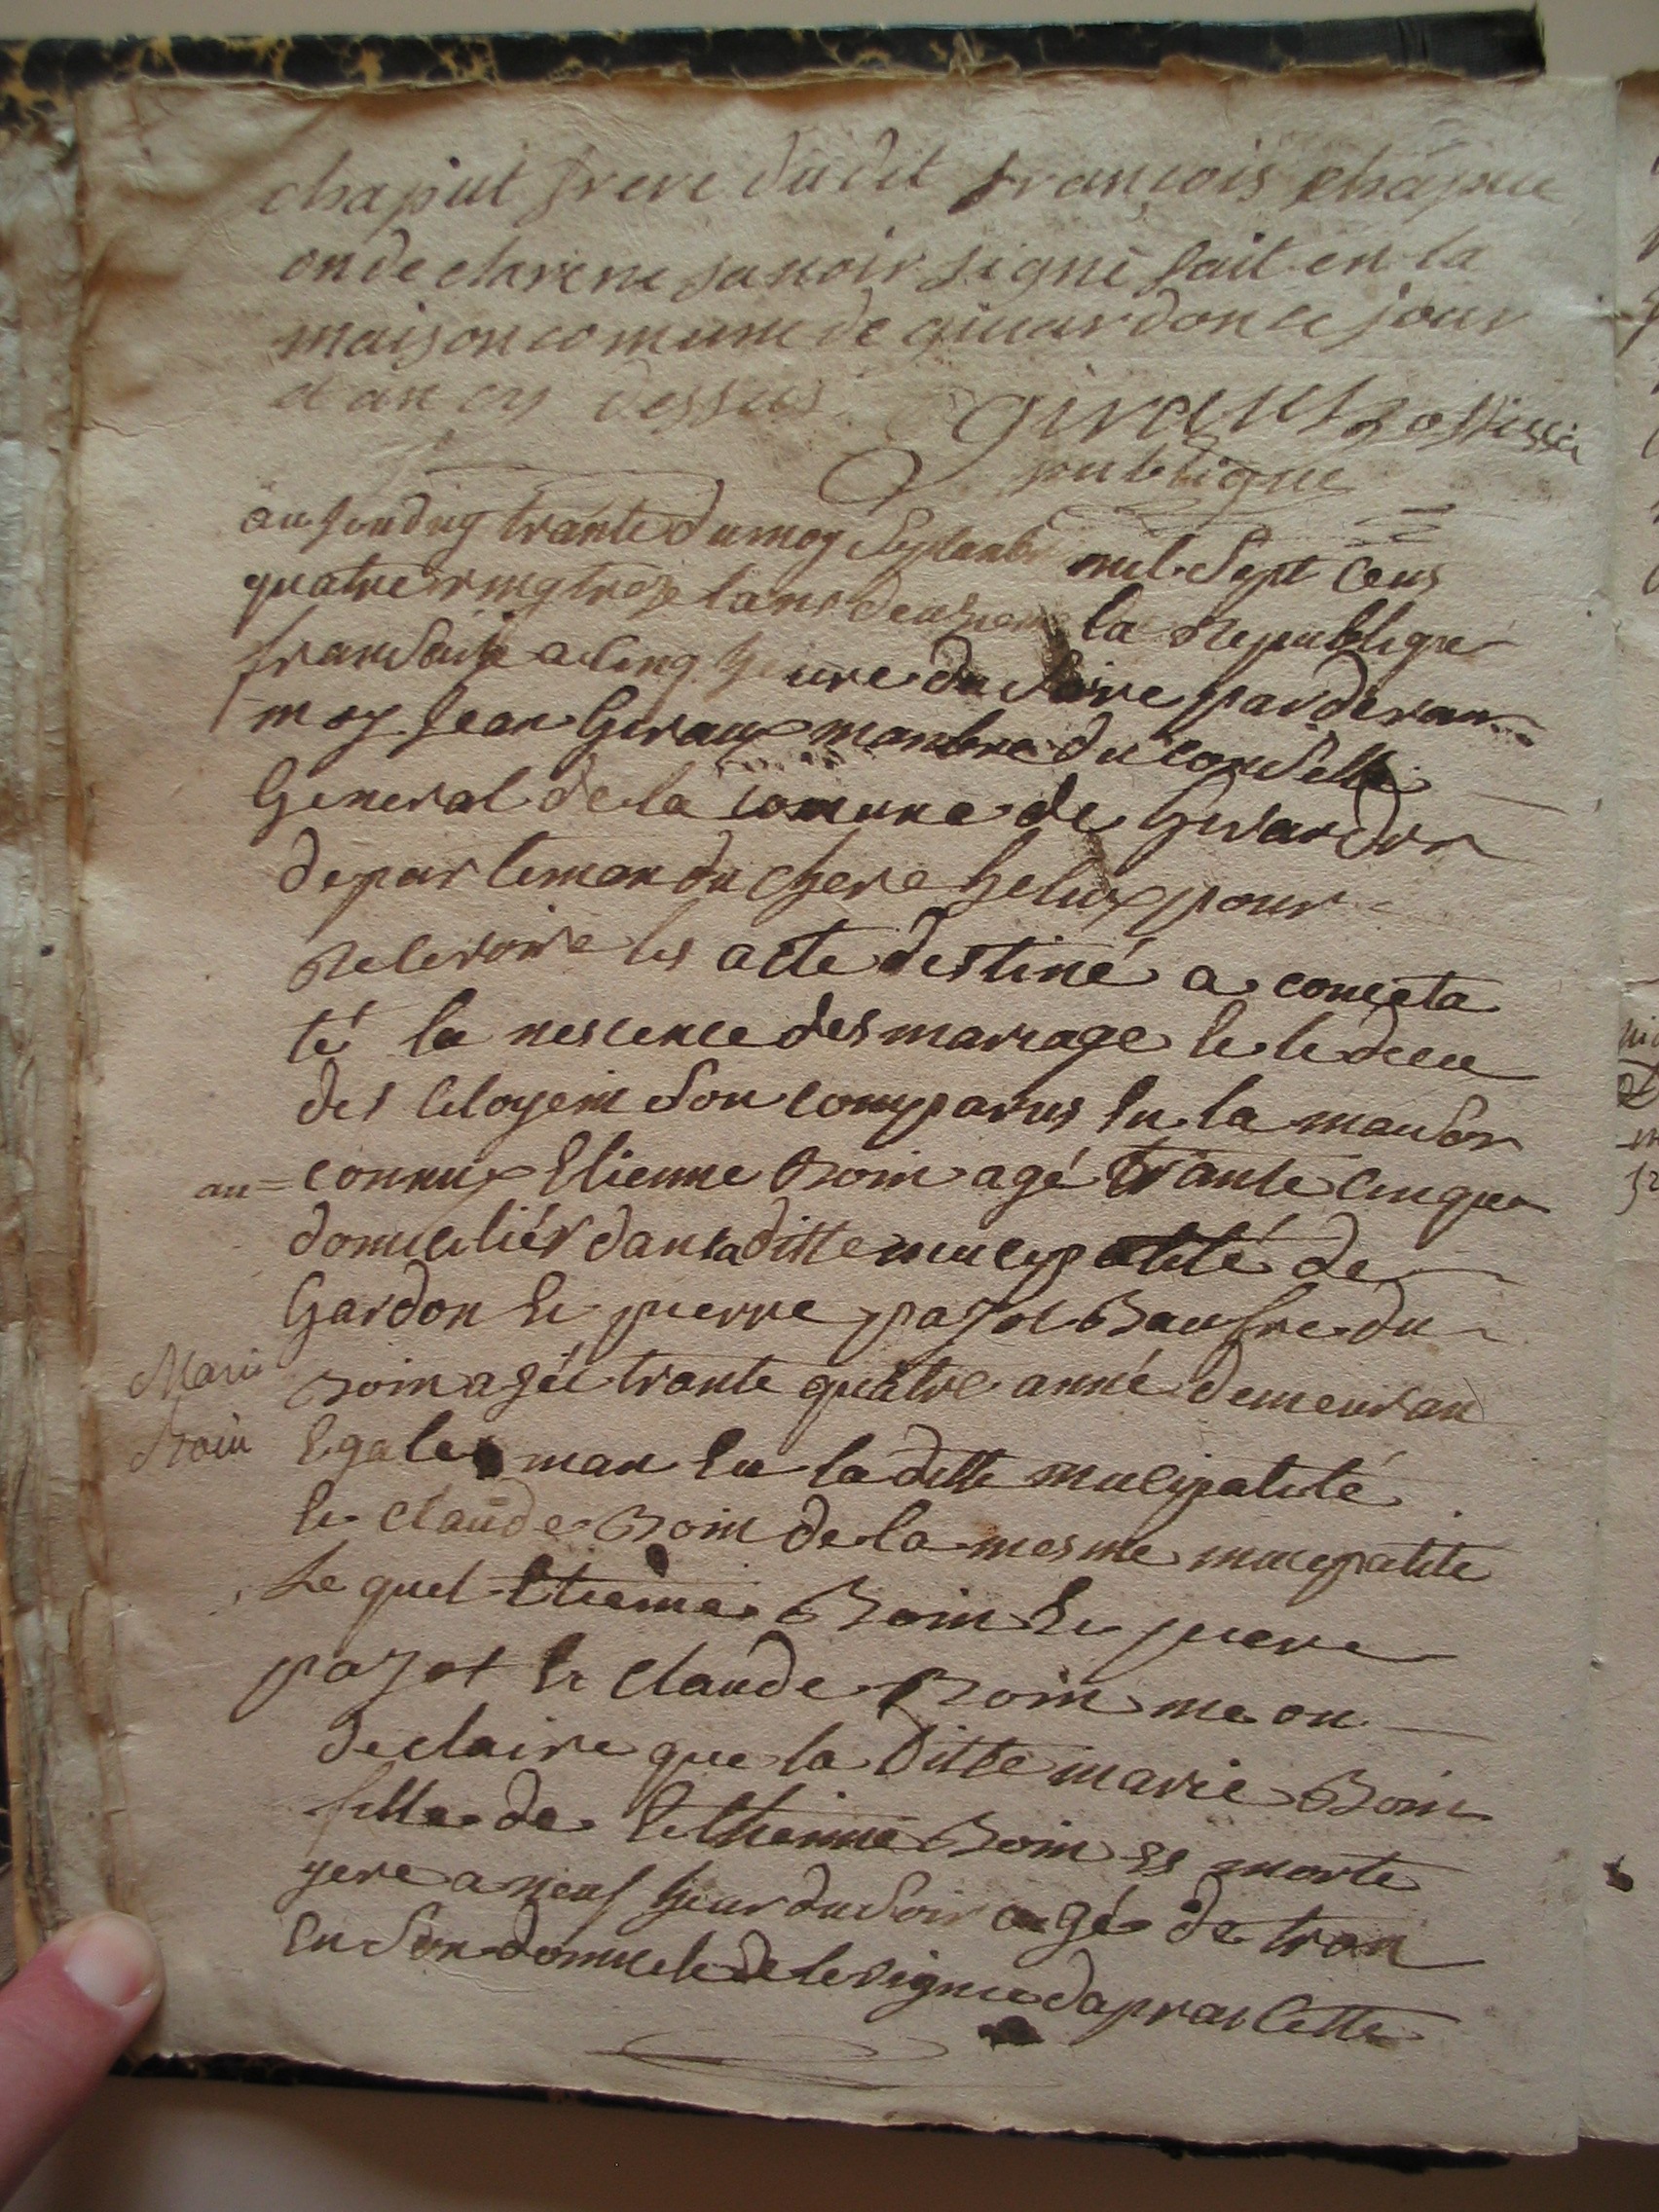 chaput frere du dit françois chapu
on declare ne savoir signé fait en la
maison comune de givardon le jour
et an cy dessus giraux offissié
publique
aujourduy trante du moy Septambre mil Sept Cens
quatre vingt treze lans deuxieme la Republique
fransaise a cinq heure du Soire par devan
moy Jean Giraux manbre du Conselle
General de la comune de Givardon
departeman du Chere helux pour
Recevoire les acte destiné a consta
té la nescence des mariage et le dece
des Citoyein Son comparus En la maison
an = connux Etienne Boin agé trante cinque
domicilier dans la ditte mucipalité de
Gardon Et pierre pazot Baufre du
Mari
Boin agée trante quatre anné demeuran
Boin
Egalleman En la ditte mucipalité
Et Claude Boin de la mesme mucepalite
Le quel Etienne Boin Et piere
pazot Et Claude Boin me on
declaire que la ditte marie Boin
fille de Ethienne Boin Es morte
yere a neuf heur du Soir agé de tron
En Son domicile de levigne dapres Cette